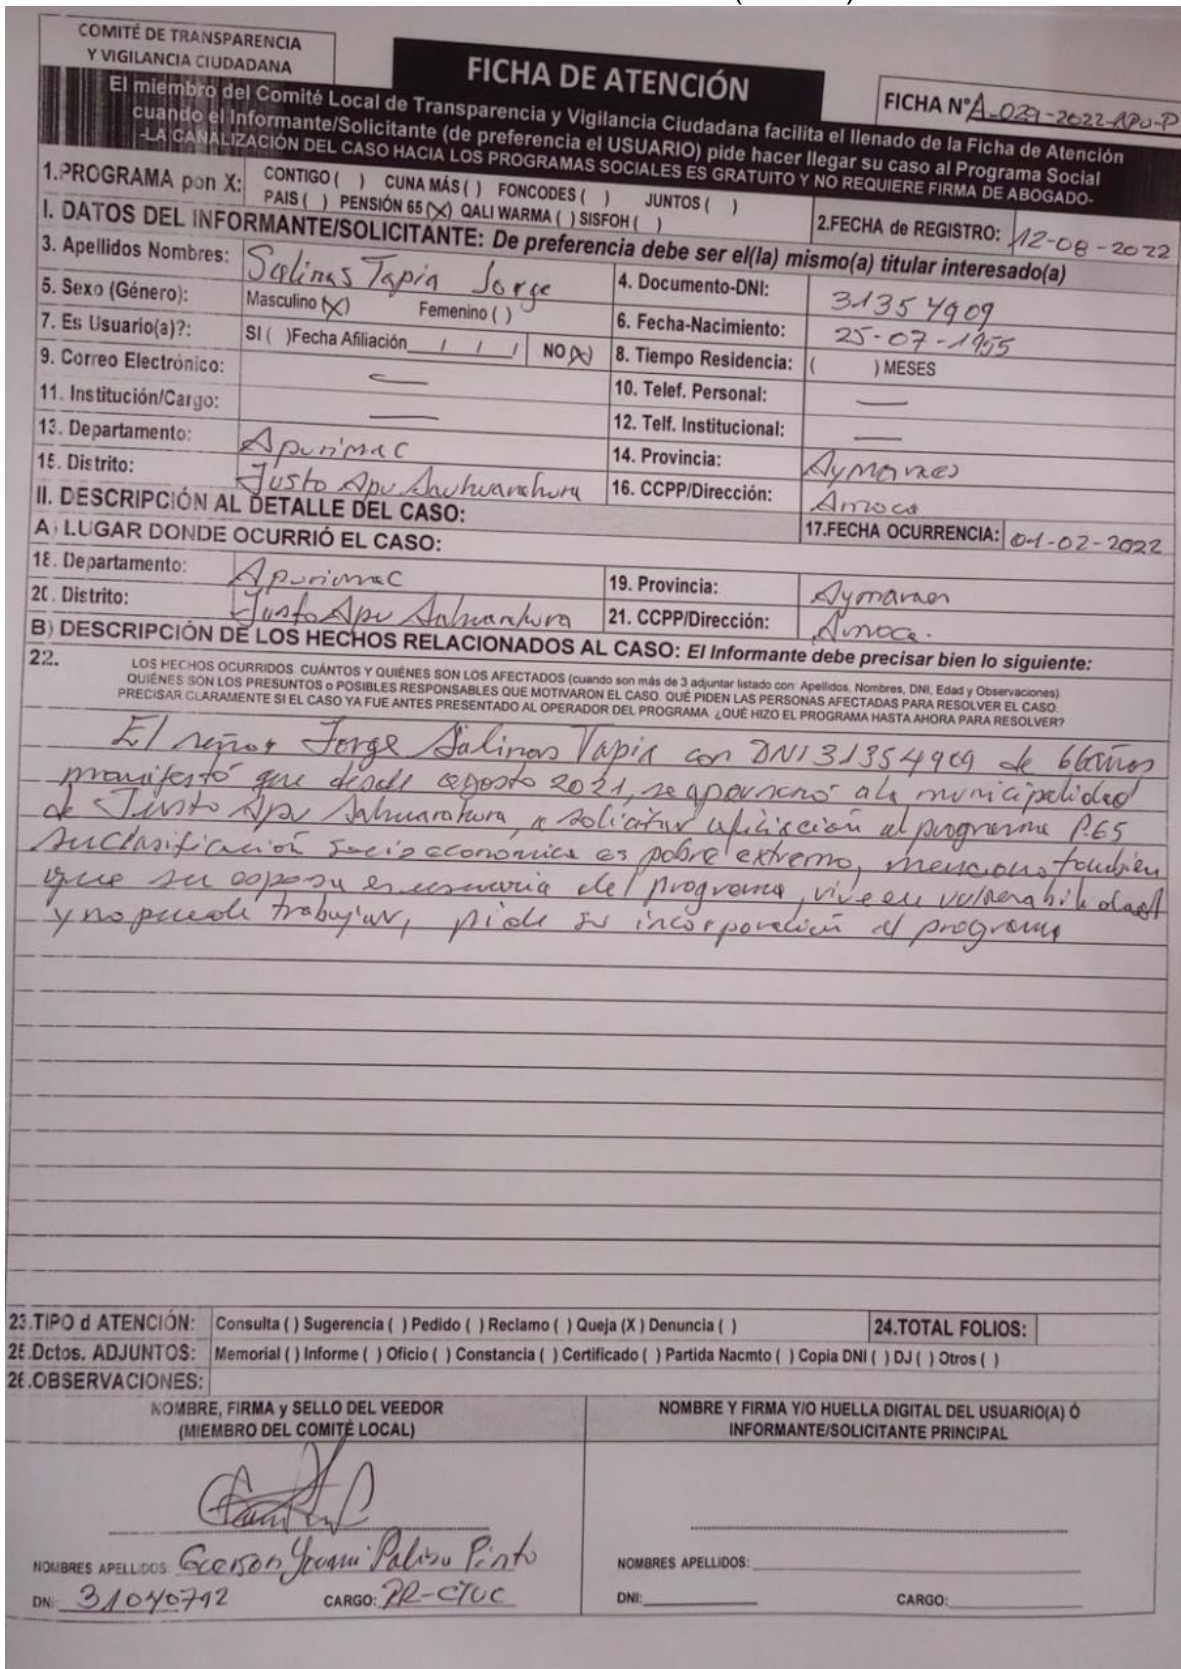 COMITÉ DE TRANSPARENCIA
Y VIGILANCIA CIUDADANA
FICHA DE ATENCIÓN
FICHA N° A-029-2022-APU-P
El miembro del Comité Local de Transparencia y Vigilancia Ciudadana facilita el llenado de la Ficha de Atención
cuando el Informante/Solicitante (de preferencia el USUARIO) pide hacer llegar su caso al Programa Social
-LA CANALIZACIÓN DEL CASO HACIA LOS PROGRAMAS SOCIALES ES GRATUITO Y NO REQUIERE FIRMA DE ABOGADO-
1.PROGRAMA pon X: CONTIGO ( ) CUNA MÁS ( ) FONCODES ( ) JUNTOS ( )
PAIS ( ) PENSIÓN 65 (X) QALI WARMA ( ) SISFOH ( )
2.FECHA de REGISTRO: 12-08-2022
I. DATOS DEL INFORMANTE/SOLICITANTE: De preferencia debe ser el(la) mismo(a) titular interesado(a)
3. Apellidos Nombres: Salinas Tapia Jorge 4. Documento-DNI: 31354909
5. Sexo (Género): Masculino (X) Femenino ( ) 6. Fecha-Nacimiento: 25-07-1955
7. Es Usuario(a)?: SI ( ) Fecha Afiliación / / / NO (X) 8. Tiempo Residencia: ( ) MESES
9. Correo Electrónico: — 10. Telef. Personal: —
11. Institución/Cargo: — 12. Telf. Institucional: —
13. Departamento: Apurimac 14. Provincia: Aymaraes
15. Distrito: Justo Apu Sauhuarahura 16. CCPP/Dirección: Amoca
II. DESCRIPCIÓN AL DETALLE DEL CASO: 17.FECHA OCURRENCIA: 01-02-2022
A) LUGAR DONDE OCURRIÓ EL CASO:
18. Departamento: Apurimac 19. Provincia: Aymaraes
20. Distrito: Justo Apu Sahuarahura 21. CCPP/Dirección: Amoca.
B) DESCRIPCIÓN DE LOS HECHOS RELACIONADOS AL CASO: El Informante debe precisar bien lo siguiente:
22. LOS HECHOS OCURRIDOS. CUÁNTOS Y QUIÉNES SON LOS AFECTADOS (cuando son más de 3 adjuntar listado con: Apellidos, Nombres, DNI, Edad y Observaciones).
QUIÉNES SON LOS PRESUNTOS o POSIBLES RESPONSABLES QUE MOTIVARON EL CASO. QUÉ PIDEN LAS PERSONAS AFECTADAS PARA RESOLVER EL CASO.
PRECISAR CLARAMENTE SI EL CASO YA FUE ANTES PRESENTADO AL OPERADOR DEL PROGRAMA ¿QUÉ HIZO EL PROGRAMA HASTA AHORA PARA RESOLVER?
El señor Jorge Salinas Tapia con DNI 31354909 de 66 años
manifestó que desde agosto 2021, se apersonó a la municipalidad
de Justo Apu Sahuarahura, a solicitar afiliación al programa P.65
su clasificación socioeconómica es pobre extremo, menciono tambien
que su esposa es usuaria del programa, vive en vulnerabilidad
y no puede trabajar, pide su incorporación al programa
23.TIPO d ATENCIÓN: Consulta ( ) Sugerencia ( ) Pedido ( ) Reclamo ( ) Queja (X) Denuncia ( ) 24.TOTAL FOLIOS:
25.Dctos. ADJUNTOS: Memorial ( ) Informe ( ) Oficio ( ) Constancia ( ) Certificado ( ) Partida Nacmto ( ) Copia DNI ( ) DJ ( ) Otros ( )
26.OBSERVACIONES:
NOMBRE, FIRMA y SELLO DEL VEEDOR
(MIEMBRO DEL COMITÉ LOCAL)
NOMBRE Y FIRMA Y/O HUELLA DIGITAL DEL USUARIO(A) Ó
INFORMANTE/SOLICITANTE PRINCIPAL
NOMBRES APELLIDOS: Pinto
DNI: 31040792 CARGO: PR-CTVC
NOMBRES APELLIDOS:
DNI: CARGO: